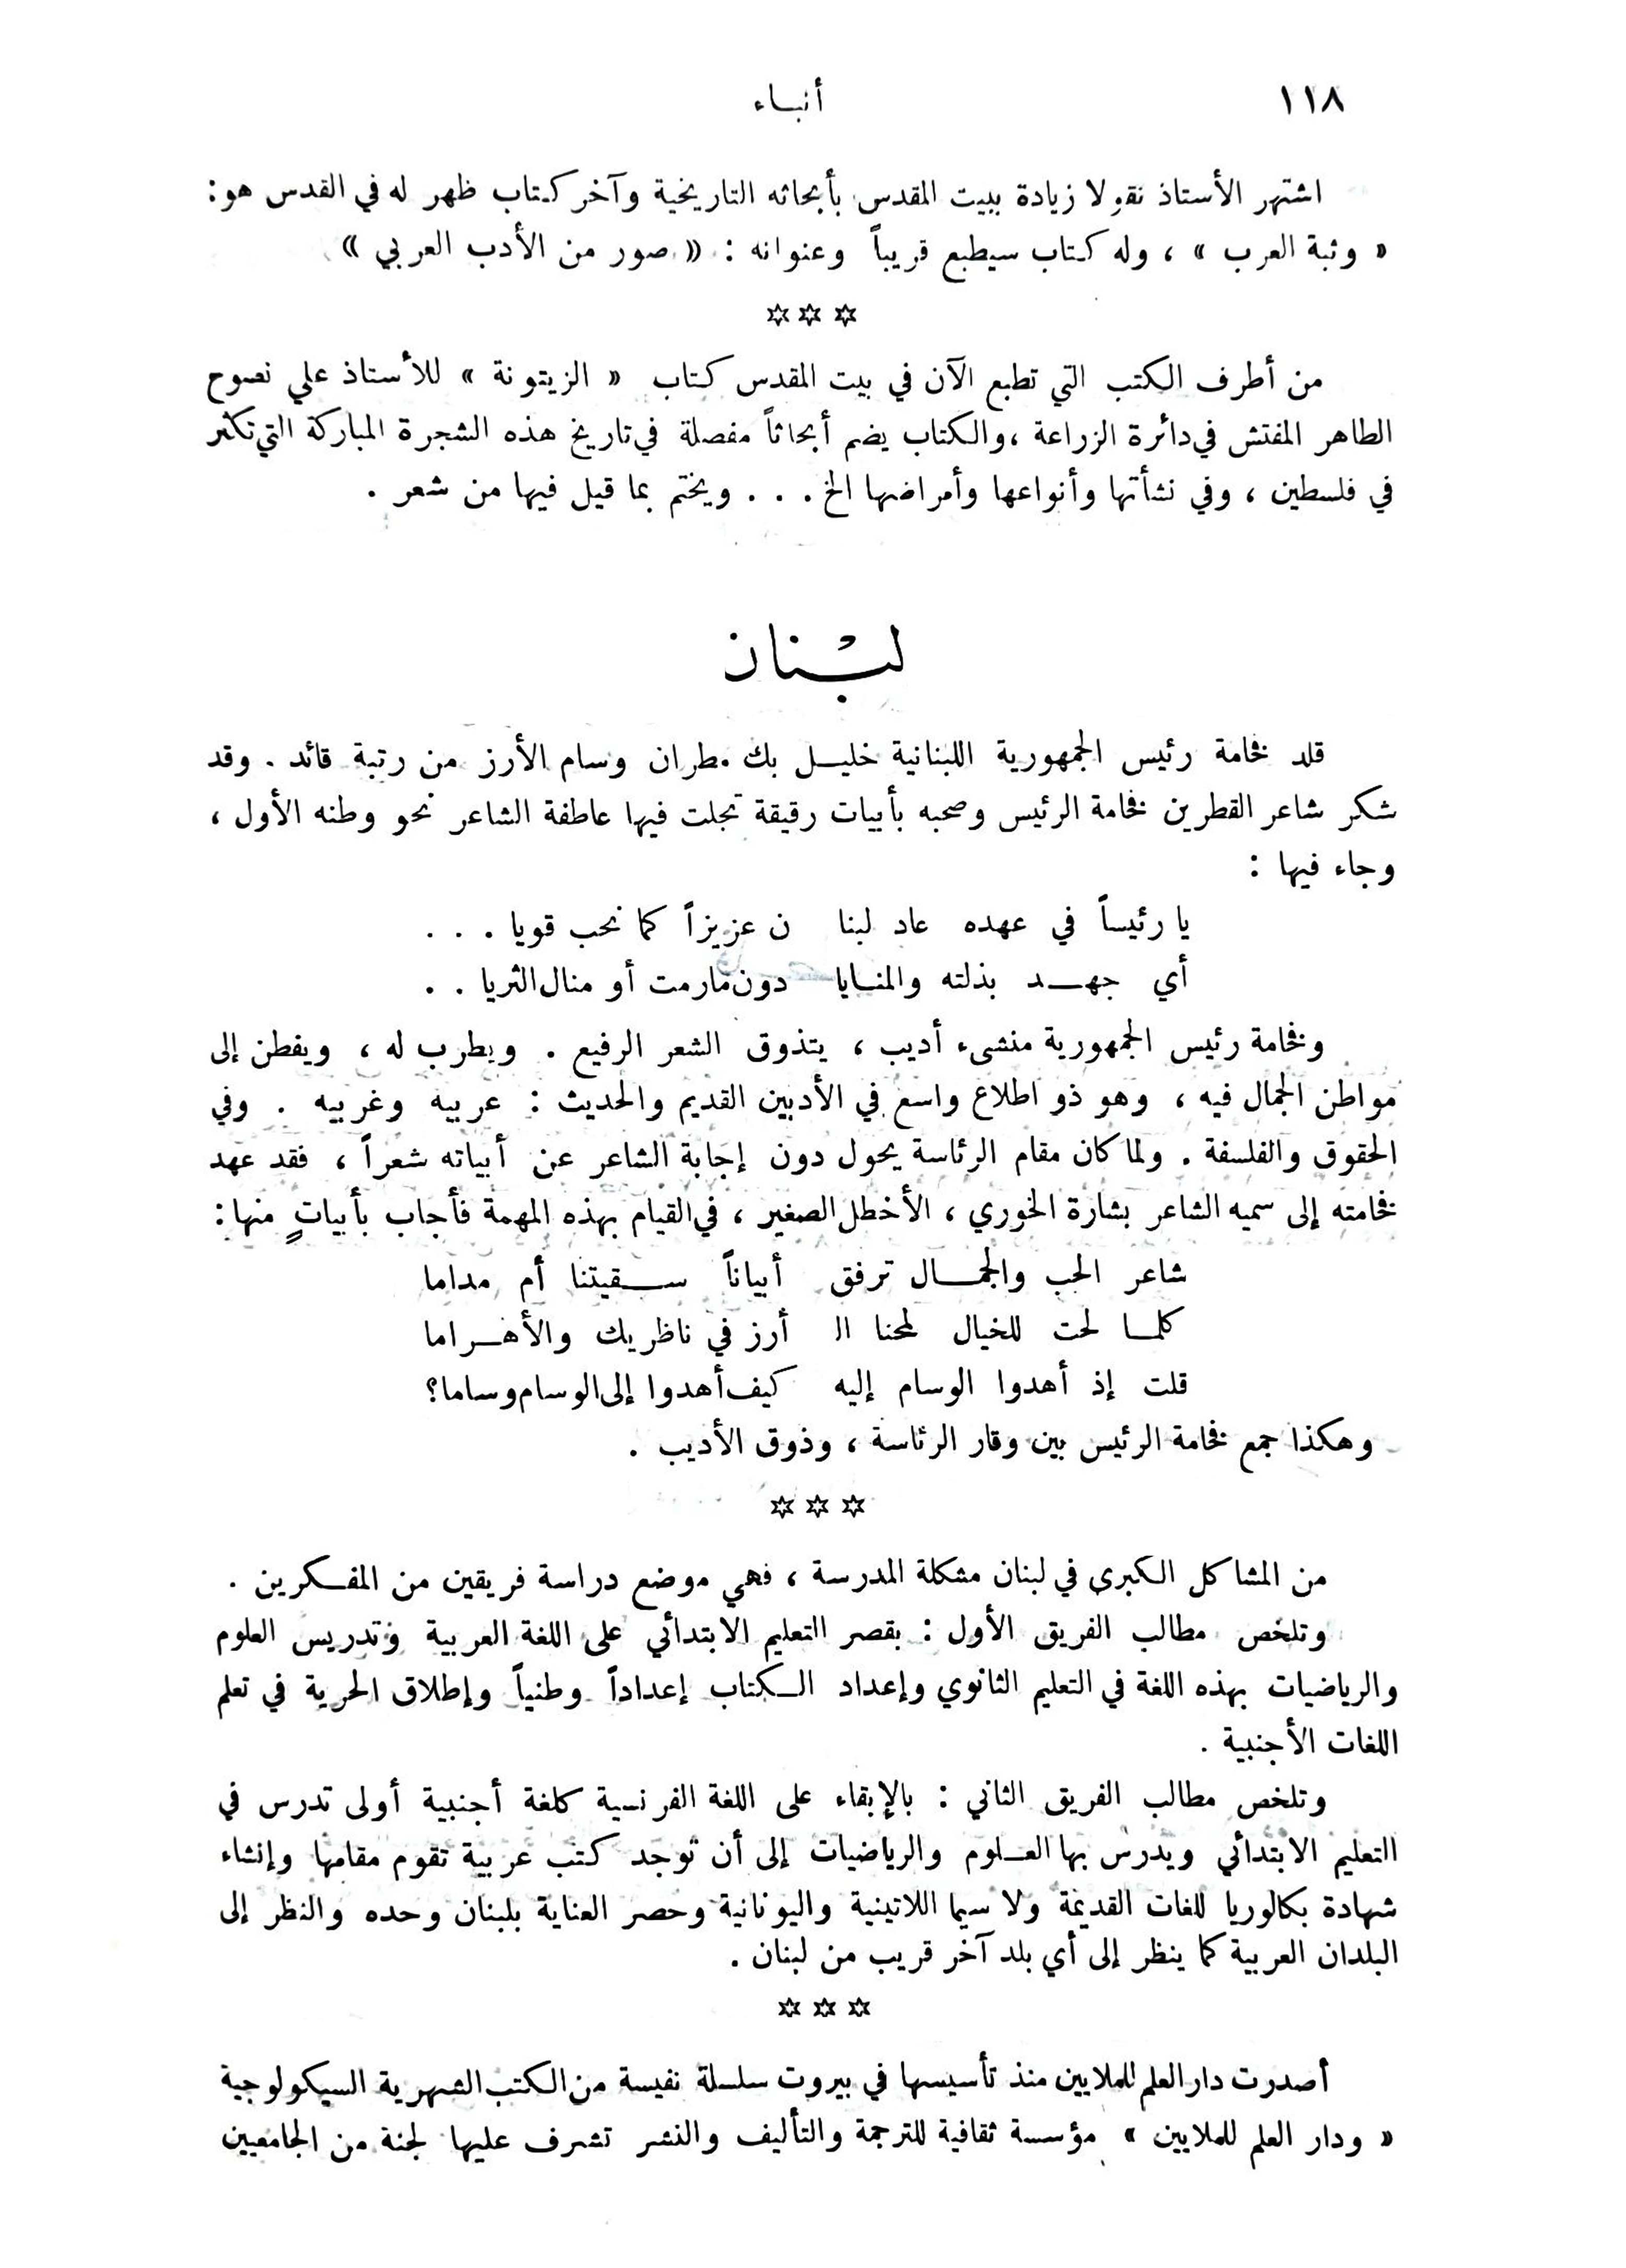 ١١٨
أنباء
اشتهر الأستاذ نقولا زيادة ببيت المقدس بأبحاثه التاريخية وآخر كتاب ظهر له في القدس هو:
« وثبة العرب » ، وله كتاب سيطبع قريباً وعنوانه : « صور من الأدب العربي »
☆ ☆ ☆
من أطرف الكتب التي تطبع الآن في بيت المقدس كتاب « الزيتونة » للأستاذ علي نصوح
الطاهر المفتش في دائرة الزراعة ، والكتاب يضم أبحاثاً مفصلة في تاريخ هذه الشجرة المباركة التي تكثر
في فلسطين ، وفي نشأتها وأنواعها وأمراضها الخ . . . ويختم بما قيل فيها من شعر .
لبْنان
قلد فخامة رئيس الجمهورية اللبنانية خليل بك مطران وسام الأرز من رتبة قائد . وقد
شكر شاعر القطرين فخامة الرئيس وصحبه بأبيات رقيقة تجلت فيها عاطفة الشاعر نحو وطنه الأول ،
وجاء فيها :
يا رئيساً في عهده عاد لبنا ن عزيزاً كما نحب قويا . . .
أي جهد بذلته والمنايا دون مارمت أو منال الثريا . .
وفخامة رئيس الجمهورية منشىء أديب ، يتذوق الشعر الرفيع . ويطرب له ، ويفطن إلى
مواطن الجمال فيه ، وهو ذو اطلاع واسع في الأدبين القديم والحديث : عربيه وغربيه . وفي
الحقوق والفلسفة . ولما كان مقام الرئاسة يحول دون إجابة الشاعر عن أبياته شعراً ، فقد عهد
فخامته إلى سميه الشاعر بشارة الخوري ، الأخطل الصغير ، في القيام بهذه المهمة فأجاب بأبياتٍ منها :
شاعر الحب والجمال ترفق أبياناً سقيتنا أم مداما
كلما لحت للخيال لمحنا ال أرز في ناظريك والأهراما
قلت إذ أهدوا الوسام إليه كيف أهدوا إلى الوسام وساما؟
وهكذا جمع فخامة الرئيس بين وقار الرئاسة ، وذوق الأديب .
☆ ☆ ☆
من المشاكل الكبرى في لبنان مشكلة المدرسة ، فهي موضع دراسة فريقين من المفكرين .
وتلخص مطالب الفريق الأول : بقصر التعليم الابتدائي على اللغة العربية وتدريس العلوم
والرياضيات بهذه اللغة في التعليم الثانوي وإعداد الكتاب إعداداً وطنياً وإطلاق الحرية في تعلم
اللغات الأجنبية .
وتلخص مطالب الفريق الثاني : بالإبقاء على اللغة الفرنسية كلغة أجنبية أولى تدرس في
التعليم الابتدائي ويدرس بها العلوم والرياضيات إلى أن توجد كتب عربية تقوم مقامها وإنشاء
شهادة بكالوريا للغات القديمة ولا سيما اللاتينية واليونانية وحصر العناية بلبنان وحده والنظر إلى
البلدان العربية كما ينظر إلى أي بلد آخر قريب من لبنان .
☆ ☆ ☆
أصدرت دار العلم للملايين منذ تأسيسها في بيروت سلسلة نفيسة من الكتب الشهرية السيكولوجية
« ودار العلم للملايين » مؤسسة ثقافية للترجمة والتأليف والنشر تشرف عليها لجنة من الجامعيين